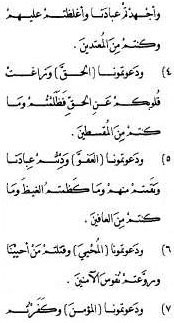 وأجهدتم عبادَنا وأغلظتم عليهم
وكنتم من المعتدين .
٤) ودعوتمونا (الحق) وزاغت
قلوبكم عن الحق فظلمتم وما
كنتم من المقسطين .
٥) ودعوتمونا (العفو) ودنتم عبادنا
ونقمتم منهم وما كظمتم الغيظ وما
كنتم من العافين .
٦) ودعوتمونا (المحيي) وقتلتم من أحيينا
وروعتم نفوس الآمنين .
٧) ودعوتمونا (المؤمن) وكفرتم